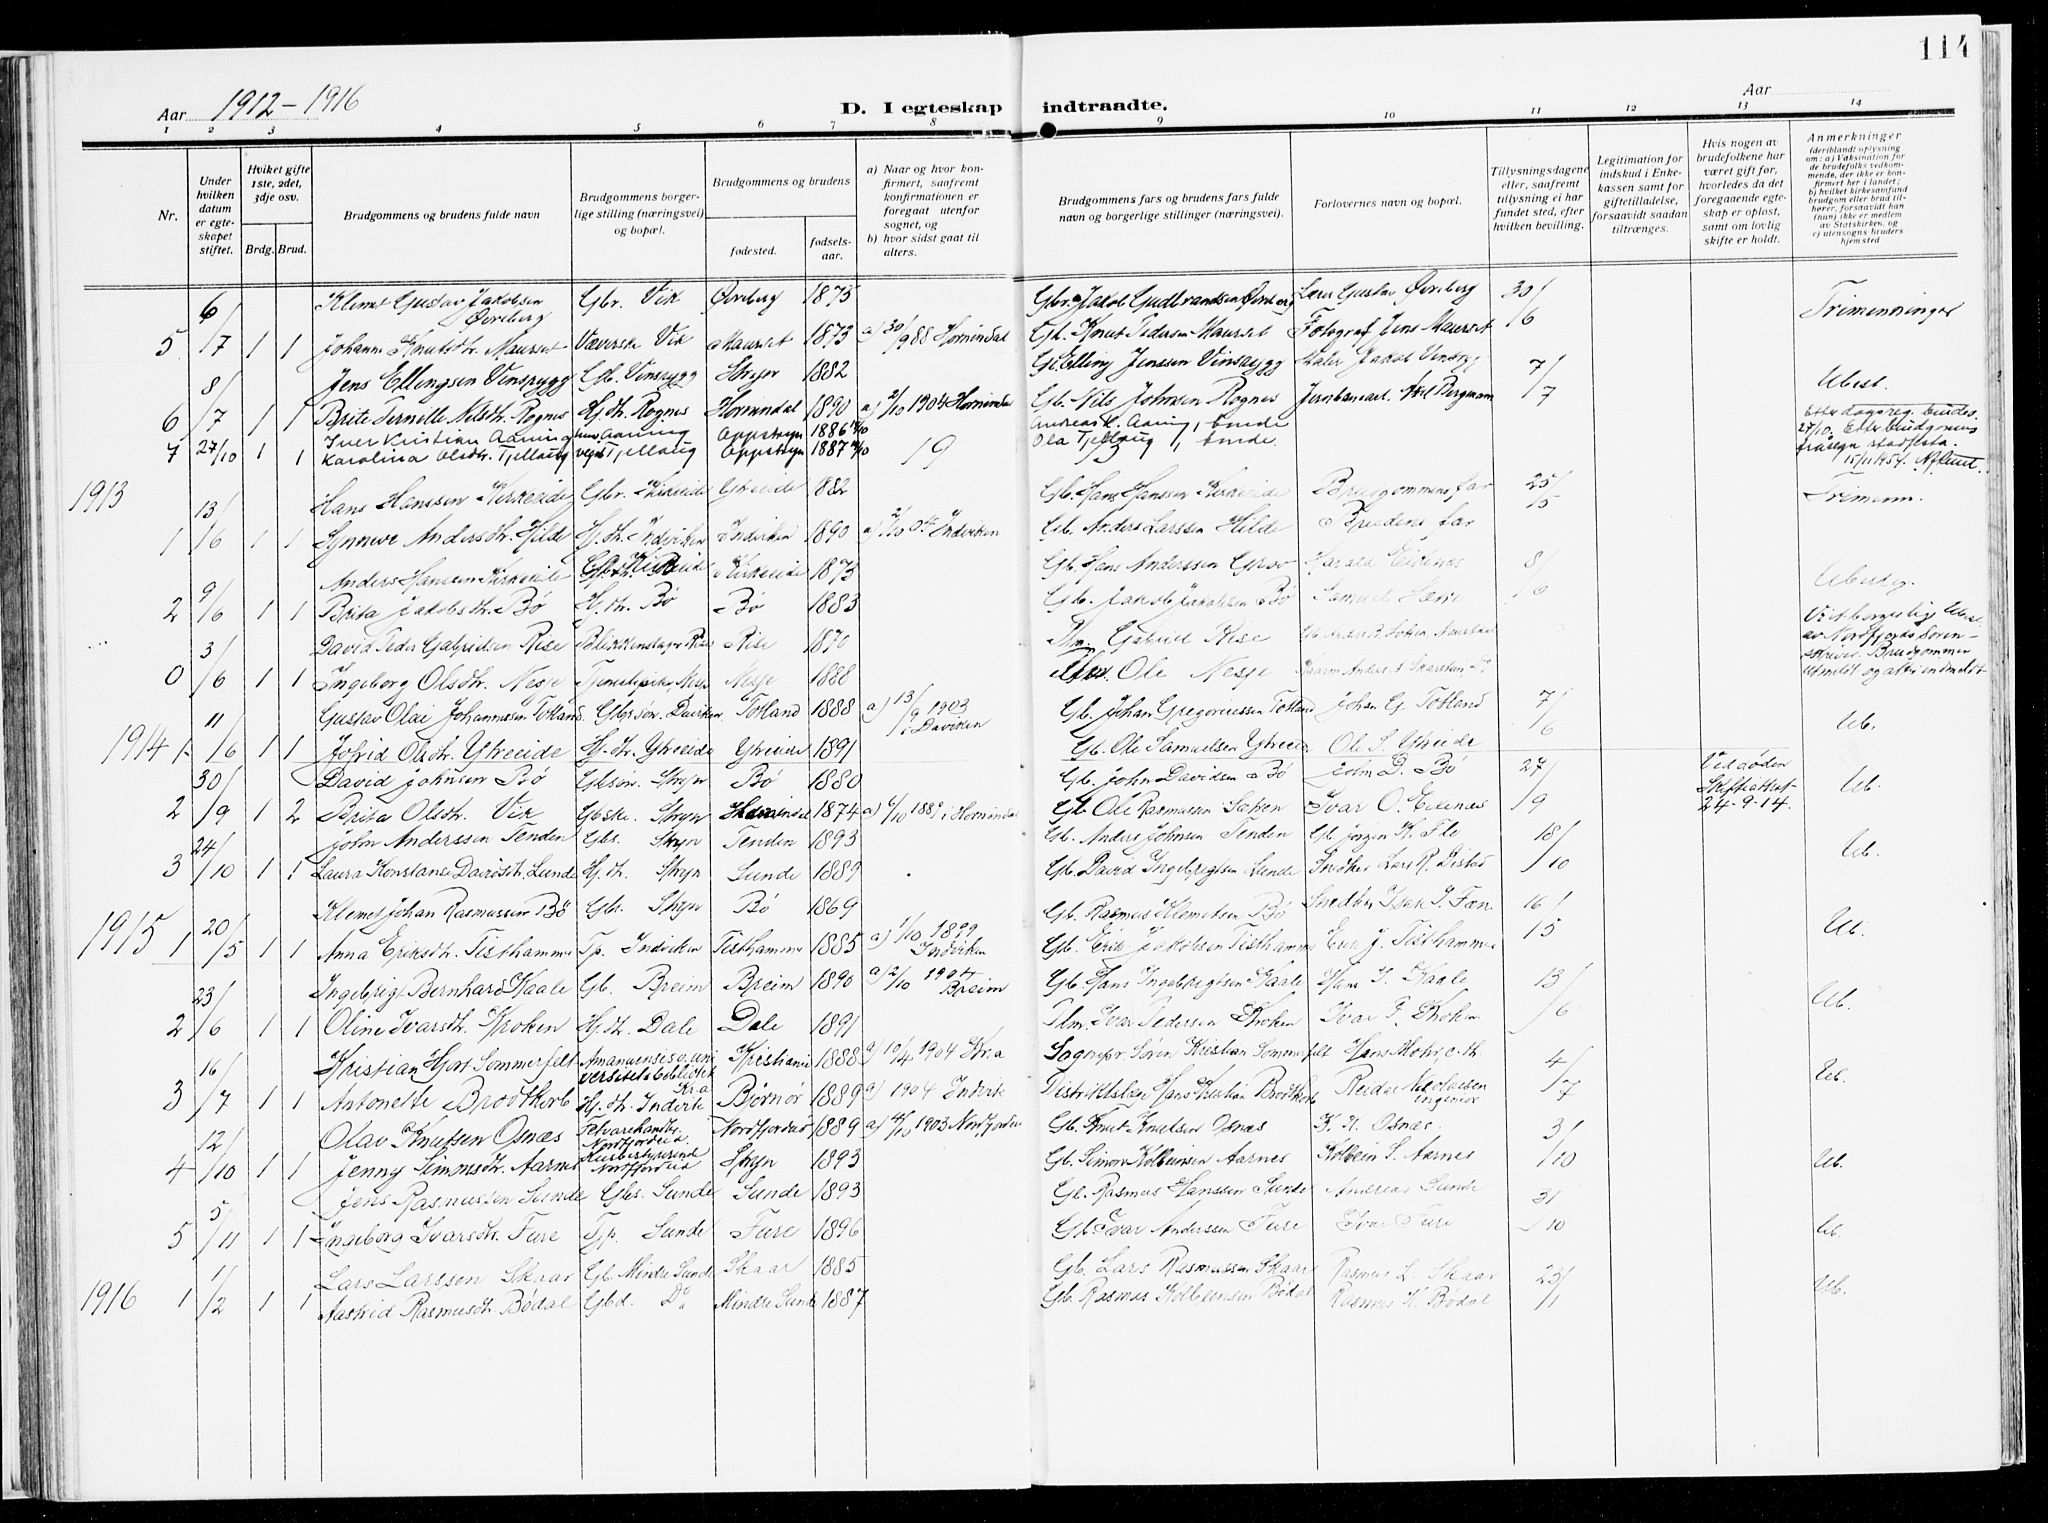 114
Aar 1912-1916
D. I egteskap indtraadte.
Aar
1 2 3 4 5 6 7 8 9 10 11 12 13 14
Nr.
Under hvilken datum er egteskapet stiftet.
Hvilket gifte 1ste, 2det, 3dje osv.
Brdg. Brud.
Brudgommens og brudens fulde navn
Brudgommens borgerlige stilling (næringsvei) og bopæl.
Brudgommens og brudens
fødested.
fødselsaar.
a) Naar og hvor konfirmert, saafremt konfirmationen er foregaat utenfor sognet, og
b) hvor sidst gaat til alters.
Brudgommens fars og brudens fars fulde navn og borgerlige stillinger (næringsvei).
Forlovernes navn og bopæl.
Tillysningsdagene eller, saafremt tillysning ei har fundet sted, efter hvilken bevilling.
Legitimation for indskud i Enkekassen samt for giftetilladelse, forsaavidt saadan tiltrænges.
Hvis nogen av brudefolkene har været gift før, hvorledes da det foregaaende egteskap er opløst, samt om lovlig skifte er holdt.
Anmerkninger (deriblandt oplysning om: a) Vaksination for de brudefolks vedkommende, der ikke er konfirmert her i landet; b) hvilket kirkesamfund brudgom eller brud tilhører, forsaavidt han (hun) ikke er medlem av Statskirken, og c) utensogns bruders hjemsted
6/ Klemet Gustav Jakobsen Øvreberg Gbr. Vik Øvreberg 1875 Gbr. Jakob Gudbrandsen Øvreberg Lars Gustav Øvreberg 30/ Trimenninger
5 /7 1 1 Johanne Knutsdtr. Maurset Væverske Vik Maurset 1873 a) 30/9 88 Hornindal Gb. Knut Pedersen Maurset Fotograf Jens Maurset /6
8/ Jens Ellingsen Vinsrygg Gb. Vinsrygg Stryn 1882 Gb. Elling Jenssen Vinsrygg Maler Jakob Vinsrygg 7/ Ubesl.
6 /7 1 1 Brite Pernille Nilsdtr. Rognes Hj. dtr. Rognes Hornindal 1890 a) 2/10 1904 Hornindal Gb. Nils Johnsen Rognes Jernbanearb. Axel Bergmann /7
7 27/10 1 1 Iver Kristian Aaning Aaning Oppstryn 1886 Andreas K. Aaning, bonde
Karolina Olsdtr. Tjellaug Tjellaug Oppstryn 1887 Ola Tjellaug, bonde
19
Etter dagsreg. 27/10. Etter brudgomens stadfesta. 15/11 1954.
1913
13/ Hans Hanssen Kirkeide Gbr. Kirkeide Ytreeide 1882 Gb. Hans Hanssen Kirkeide Brudgommens far 25/ Trimenn.
1 /6 1 1 Synneve Andersdtr. Hilde Hj. dtr. Indviken Indviken 1890 a) 2/10 04 Indviken Gb. Anders Larssen Hilde Brudens far /5
9/ Anders Hansen Kirkeide Kirkeide 1873 Gb. Hans Anderssen Harald Eikenæs 8/ Ubeslg.
2 /6 1 1 Brita Jakobsdtr. Bø Hj. dtr. Bø Bø 1883 Gb. Jakob Jakobsen Bø Samuel /6
3/ David Peder Gabrielsen Rise Blikkenslager Rise Rise 1870 Plm. Gabriel Rise
0 /6 1 1 Ingeborg Olsdtr. Nesje Tjenestepike, Nesje Nesje 1888 Ole Nesje
Viet borgerlig av Nordfjords Sorenskriver. Brudgommen utmeldt og atter indmeldt
11/ Gustav Olai Johannessen Totland Gbrsøn. Daviken Totland 1888 a) 13/9 1903 i Daviken Gb. Johan Gregoriussen Totland Johan G. Totland 7/ Ub.
1914 1 /6 1 1 Jofrid Olsdtr. Ytreeide Hj. dtr. Ytreeide Ytreeide 1891 Gb. Ole Samuelsen Ytreeide Ole S. Ytreeide /6
30/ David Johnsen Bø Gbrsøn. Stryn Bø 1880 Gb. John Davidsen Bø John D. Bø 27/ Ved døden Ub.
2 /9 1 2 Brita Olsdtr. Vik Gbske. Stryn Hornindal 1874 a) 6/10 1889 i Hornindal Gb. Ole Rasmussen Sætren Ivar O. Eikenes /9 Skifteattest 24-9-14.
24/ John Anderssen Tenden Gbs. Stryn Tenden 1893 Gb. Anders Johnsen Tenden Gb. Jørgen K. Flo 18/ Ub.
3 /10 1 1 Laura Konstanse Davidsdtr. Sunde Hj. dtr. Stryn Sunde 1889 Gb. David Ingebrigtsen Sunde Snedker Lars R. Distad /10
20/ Klemet Johan Rasmussen Bø Gbs. Stryn Bø 1869 Gb. Rasmus Klemetsen Bø Snedker Isak 16/ Ub.
1915 1 /5 1 1 Anna Eriksdtr. Tisthammer Tp. Indviken Tisthammer 1885 a) 1/10 1899 Indviken Gb. Erik Jakobsen Tisthammer Erik J. Tisthammer /5
23/ Ingebrigt Bernhard Kaale Gb. Breim Breim 1890 a) 2/10 1904 Breim Gb. Hans Ingebrigtsen Kaale Hans I. Kaale 13/ Ub.
2 /6 1 1 Oline Ivarsdtr. Kroken Hj. dtr. Dale Dale 1891 Plm. Ivar Pedersen Kroken Ivar P. Kroken /6
16/ Kristian Hjort Sommerfelt Amanuensis v. universitetsbibliotek Kr.a Kristiania 1888 a) 10/4 1904 Kr.a Sogнepr. Søren Kristian Sommerfelt Hans Mohr, c. th. 4/ Ub.
3 /7 1 1 Antonette Brodtkorb Hj. dtr. Indvik Bjørnør 1889 a) 1904 Indvik Distriktslæge Hans Kristian Brodtkorb Reidar Nicolaisen ingeniør /7
12/ Olav Knutsen Osnæs Nordfjordeid Nordfjordeid 1889 a) 4/10 1903 Nordfjordeid Gb. Knut Knutsen Osnæs K. K. Osnæs 3/ Ub.
4 /10 1 1 Jenny Simonsdtr. Aarnes Husbestyrerinde Nordfjordeid Stryn 1893 Gb. Simon Kolbeinsen Aarnes Kolbein S. Aarnes /10
5/ Jens Rasmussen Sunde Gbs. Sunde Sunde 1893 Gb. Rasmus Hanssen Sunde Andreas Sunde 31 Ub.
5 /11 1 1 Ingeborg Ivarsdtr. Fure Tjp. Sunde Fure 1896 Gb. Ivar Anderssen Fure Ivar Fure /10
1/ Lars Larsson Skaar Gb. Mindre Sunde Skaar 1885 Gb. Lars Rasmussen Skaar Rasmus L. Skaar 23/ Ub.
1916 1 /2 1 1 Aastrid Rasmusdtr. Bødal Gbd. Do Mindre Sunde 1887 Gb. Rasmus Kolbeinsen Bødal Rasmus K. Bødal /1